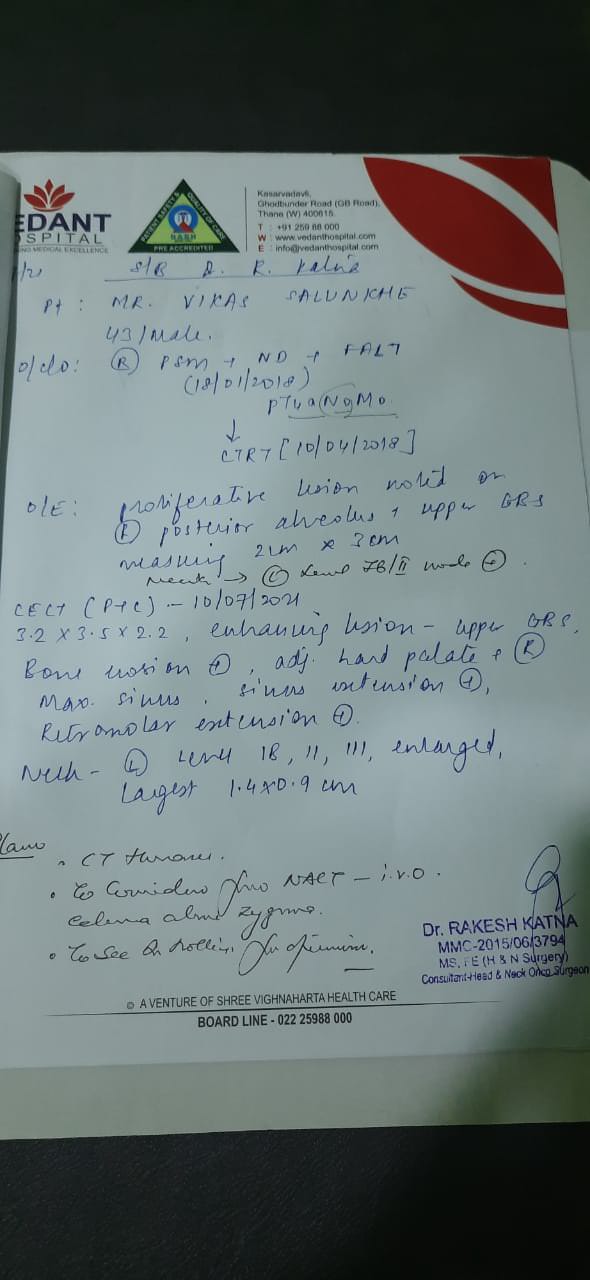 EDANT
OSPITAL
ING MEDICAL EXCELLENCE
PATIENT SAFETY & QUALITY OF CARE
NABH
PRE ACCREDITED
Kasarvadavli,
Ghodbunder Road (GB Road),
Thane (W) 400615.
T : +91 259 88 000
W : www.vedanthospital.com
E : info@vedanthospital.com
S/B Dr. R. Katna
Pt : MR. VIKAS SALUNKHE
43/Male.
O/c/o: (R) PSM + ND + FALT
(18/01/2018)
pT4aN0M0
↓
CTRT [10/04/2018]
O/E: proliferative lesion noted on
(R) posterior alveolus + upper GBS
measuring 2cm x 3cm
Neck → (L) Level IB/II node (+).
CECT (P+C) - 10/07/2021
3.2 x 3.5 x 2.2, enhancing lesion - upper GBS,
Bone erosion (+), adj. hard palate + (R)
Max. sinus, sinus extension (+),
Retromolar extension (+).
Neck - (L) Level IB, II, III, enlarged,
largest 1.4x0.9 cm
Plan
• CT thorax.
• To Consider for NACT - i.v.o.
edema above zygoma.
• To See Dr for opinion.
Dr. RAKESH KATNA
MMC-2015/06/3794
MS, FE (H & N Surgery)
Consultant-Head & Neck Onco Surgeon
A VENTURE OF SHREE VIGHNAHARTA HEALTH CARE
BOARD LINE - 022 25988 000